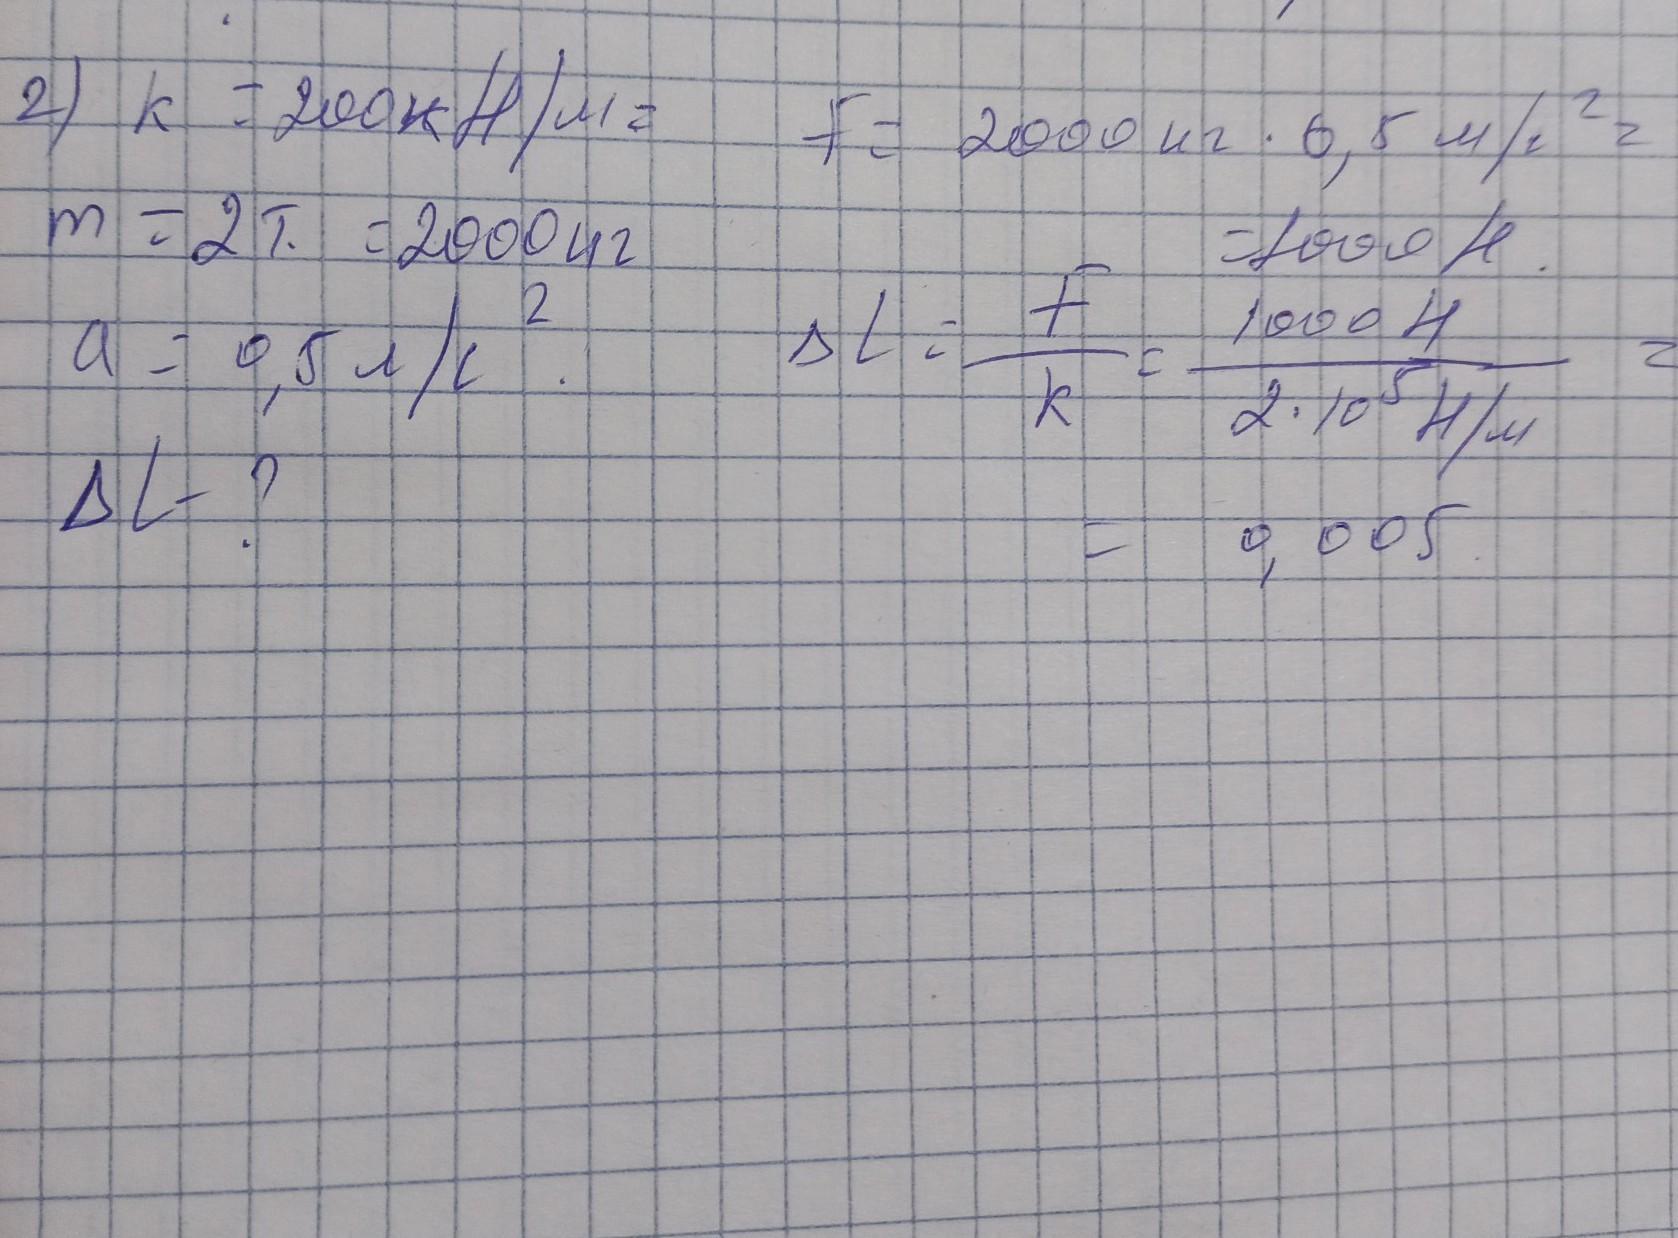 2) k = 200кН/м =
m = 2т. = 2000кг
a = 0,5м/с².
ΔL - ?
F = 2000кг · 0,5м/с² =
= 1000Н.
ΔL = F/k = 1000Н/2·10⁵Н/м =
= 0,005